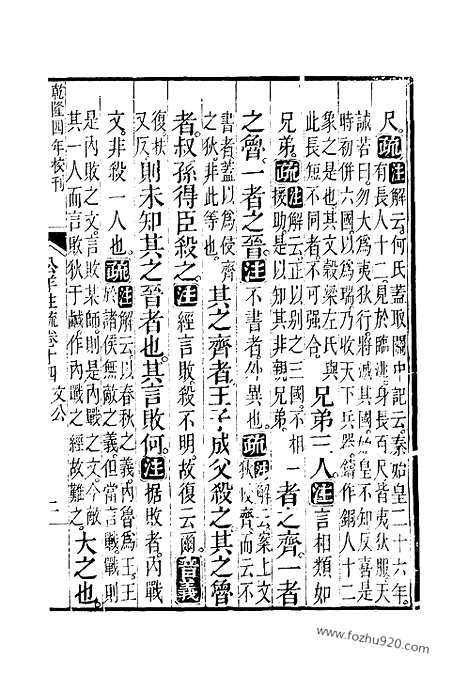 尺。疏注解云何氏蓋取關中記云秦始皇二十六年
有長人十二見於臨洮身長百尺皆夷狄服天
誡若曰勿大爲夷狄行將滅其國始皇不知反喜是
時初併六國以爲瑞乃收天下兵器鑄作銅人十二
象之是也其文穀梁左氏與
此長短不同者不可強合兄弟三人。注言相類如
兄弟。疏注解云正以別之三國不相
援助是以知其非親兄弟一者之齊一者
之魯一者之晉。注不書者外異也。疏注解云案上文
狄侵齊而云不
書者蓋以爲使齊
之狄非此等也其之齊者王子成父殺之其之魯
者叔孫得臣殺之。注經言敗殺不明故復云爾。音義
復扶
又反則未知其之晉者也其言敗何。注据敗者內戰
文非殺一人也。疏注解云以春秋之義內魯爲王王
於諸侯無敵之義但當言戰戰則
是內敗之文言敗某師則是內戰之文今敵
其一人而言敗狄于鹹作內戰之經故難之大之也。
乾隆四年校刊
公羊注疏卷十四 文公
www.fozhu920.com